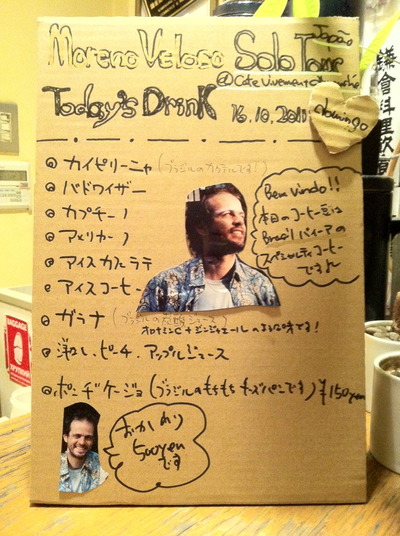 Moreno Veloso Solo Tour
João
@Cafe Vivement Dimanche
Today's Drink
16.10.2011
domingo
カイピリーニャ (ブラジルのカクテルです!)
バドワイザー
カプチーノ
アメリカーノ
アイスカフェラテ
アイスコーヒー
ガラナ (ブラジルの炭酸ジュース)
オロナミンC+ジンジャエールのような味です!
洋なし、ピーチ、アップルジュース
ポンヂケージョ (ブラジルのもちもちチーズパンです) ¥150yen
Bem Vindo!!
本日のコーヒー豆は
Brasil バイーアの
スペシャルティコーヒー
ですよ
おかわり
500yen
です
鎌倉料理飲
BAGGAGE